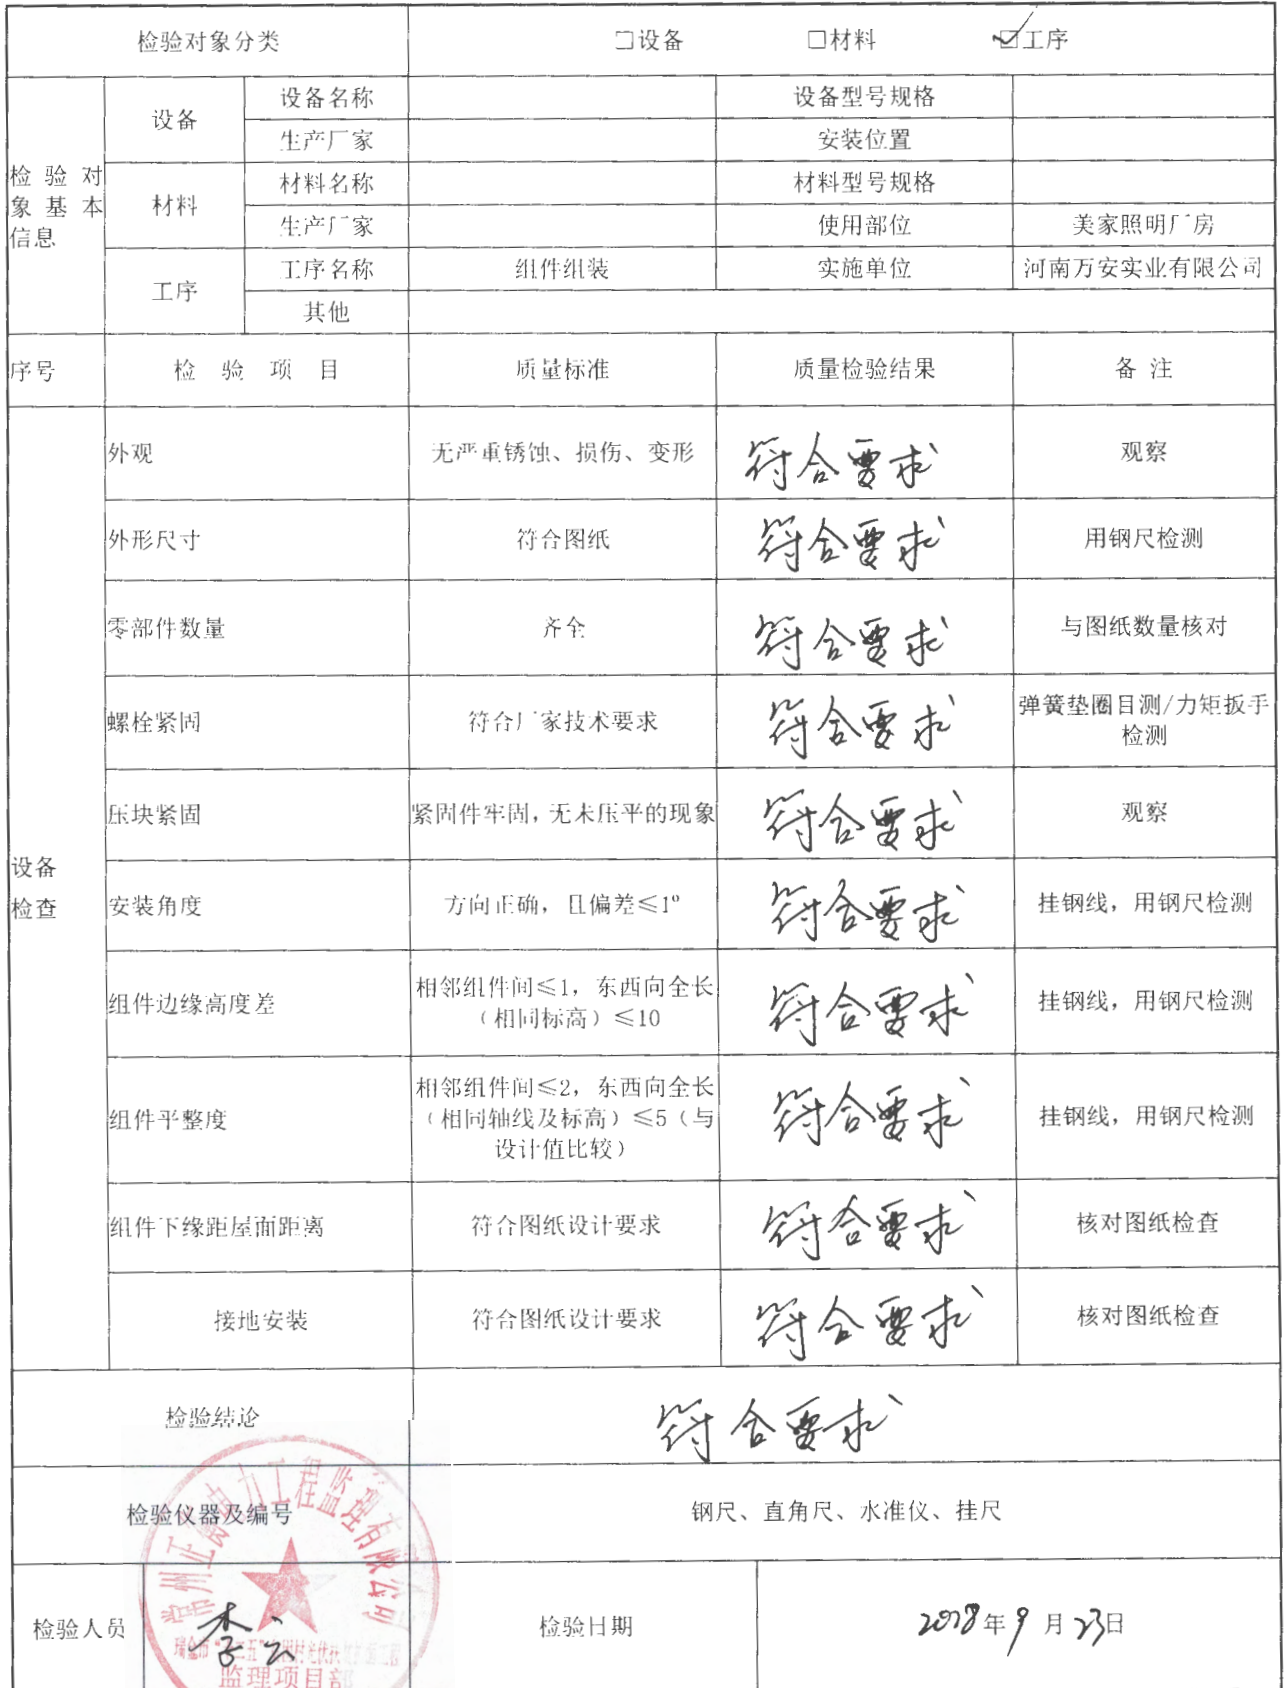 检验对象分类 □设备 □材料 ☑工序
检验对象基本信息 设备 设备名称 设备型号规格
生产厂家 安装位置
材料 材料名称 材料型号规格
生产厂家 使用部位 美家照明厂房
工序 工序名称 组件组装 实施单位 河南万安实业有限公司
其他
序号 检验项目 质量标准 质量检验结果 备注
设备
检查
外观 无严重锈蚀、损伤、变形 符合要求 观察
外形尺寸 符合图纸 符合要求 用钢尺检测
零部件数量 齐全 符合要求 与图纸数量核对
螺栓紧固 符合厂家技术要求 符合要求 弹簧垫圈目测/力矩扳手
检测
压块紧固 紧固件牢固，无未压平的现象 符合要求 观察
安装角度 方向正确，且偏差≤1° 符合要求 挂钢线，用钢尺检测
组件边缘高度差 相邻组件间≤1，东西向全长
（相同标高）≤10 符合要求 挂钢线，用钢尺检测
组件平整度 相邻组件间≤2，东西向全长
（相同轴线及标高）≤5（与
设计值比较） 符合要求 挂钢线，用钢尺检测
组件下缘距屋面距离 符合图纸设计要求 符合要求 核对图纸检查
接地安装 符合图纸设计要求 符合要求 核对图纸检查
检验结论 符合要求
检验仪器及编号 钢尺、直角尺、水准仪、挂尺
检验人员 李云 检验日期 2018年9月23日
常州正衡电力工程监理有限公司
监理项目部